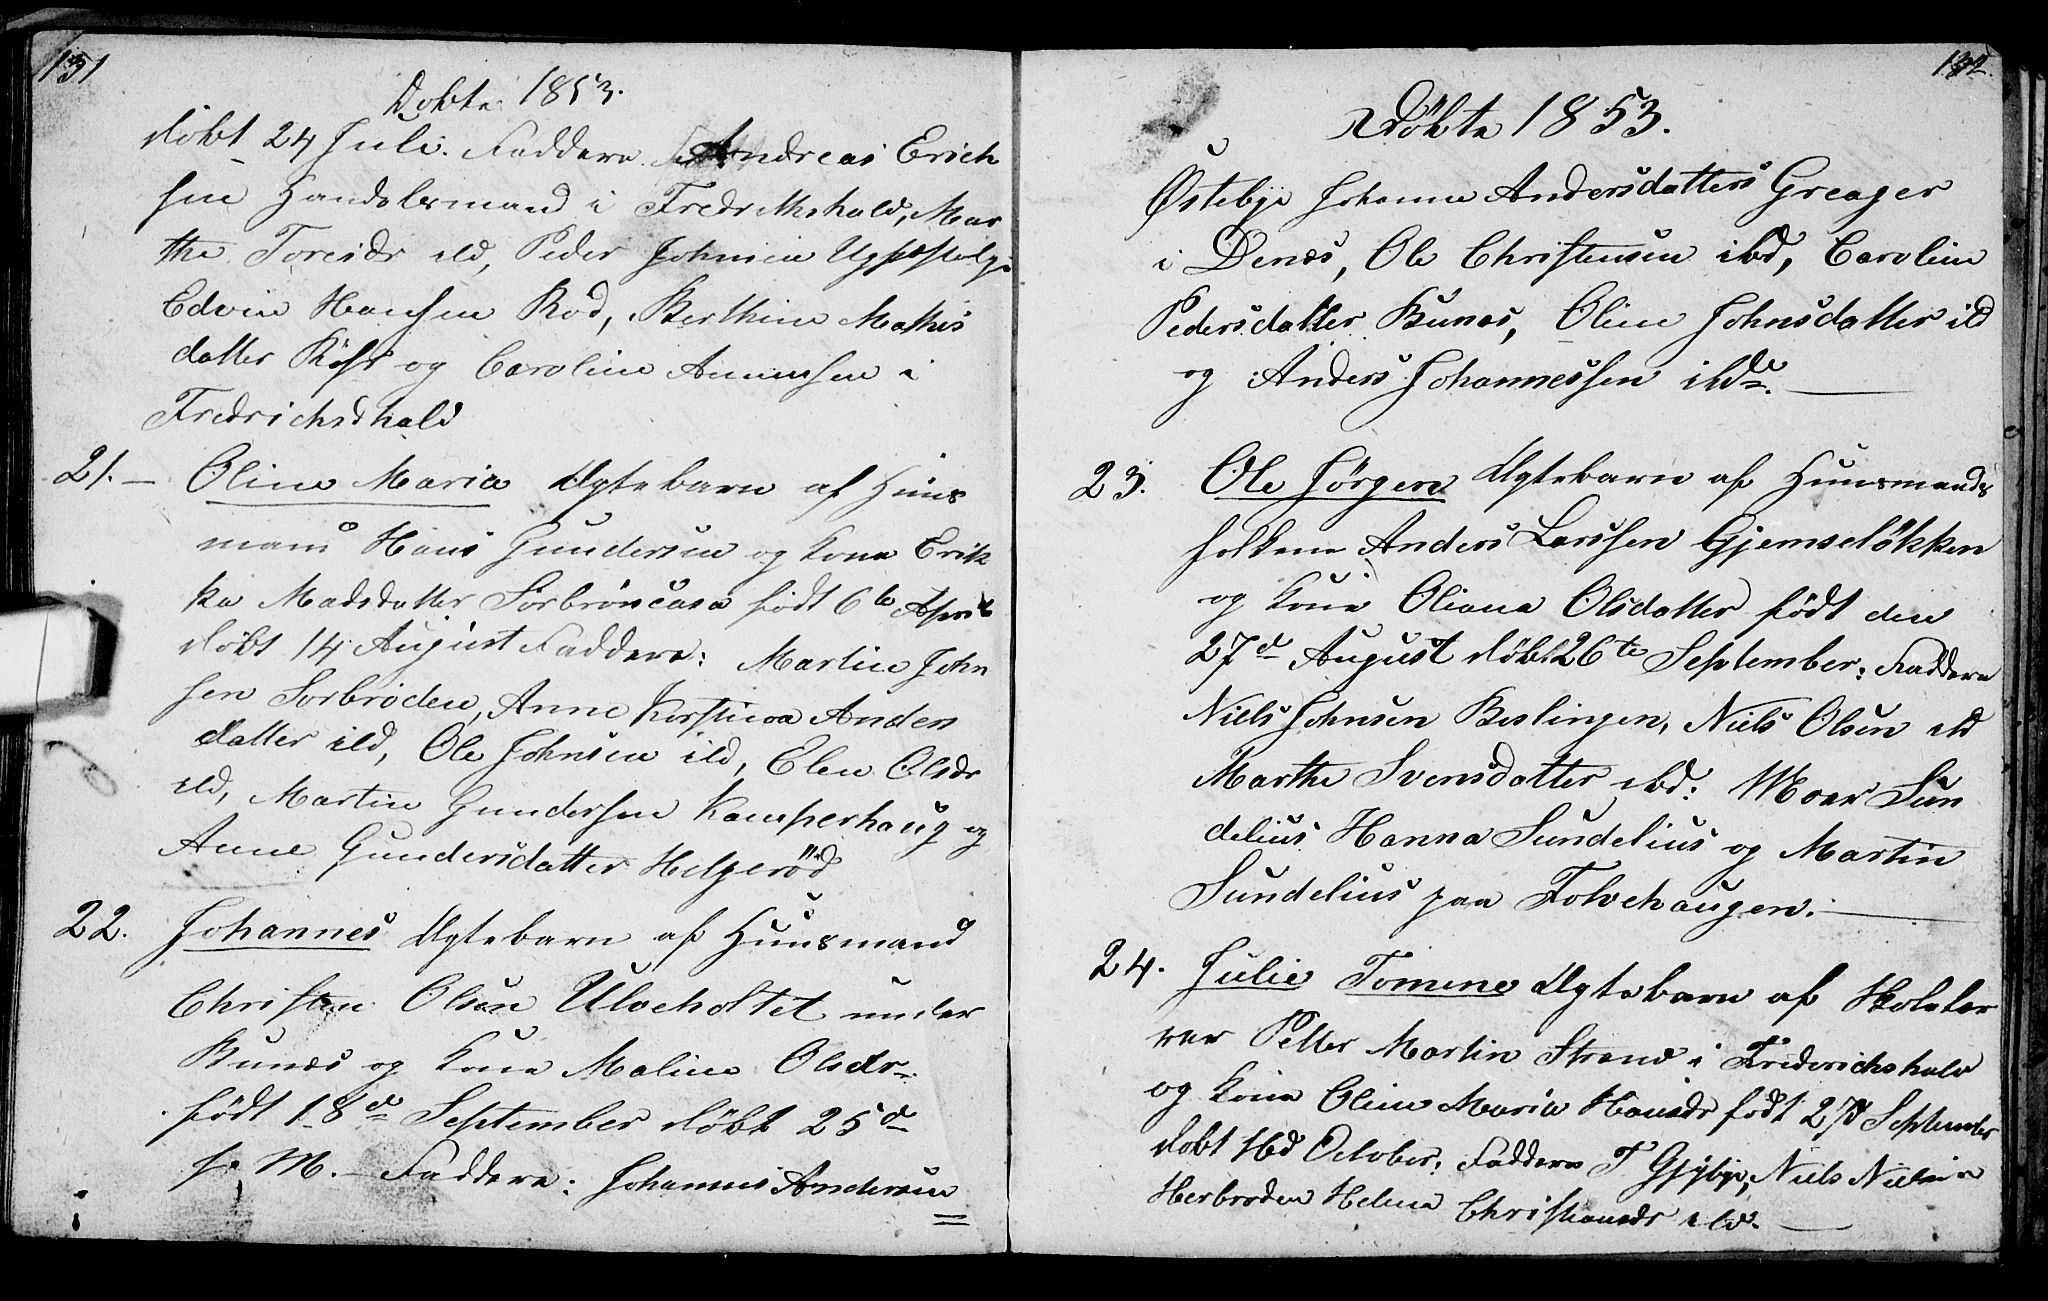 131
Döbte 1853.
döbt 24 Juli. Faddere Andreas Erich
sen Handelsmand i Fredrikshald, Mar
the Toresdr ibd, Peder Johnsen
Edvin Hansen Röd, Berthine Mathis
datter Röd og Caroline Amundsen i
Fredrichshald
21. – Oline Maria Ægtebarn af Huus
mand Hans Gundersen og Kone Erik
ka Madsdatter födt 6te April
döbt 14 August Faddere: Martin John
sen Sorbröden, Anne Kirstina Anders
datter ibd, Ole Johnsen ibd, Elen Olsdr
ibd, Martin Gundersen Kamperhaug og
Anne Gundersdatter Helgeröd
22. Johannes Ægtebarn af Huusmand
Christen Olsen Ulveholtet under
Bunæs og Kone Maline Olsdr.
födt 18de September döbt 25de
s. M. – Faddere: Johannes Andersen
132.
Döbte 1853.
Östebye Johanne Andersdatters Greager
i Denæs, Ole Christensen ibd, Caroline
Pedersdatter Bunæs, Oline Johnsdatter ibd
og Anders Johannessen ibde.
23. Ole Jörgen Ægtebarn af Huusmands
folkene Anders Larssen Gjemselökken
og Kone Oliana Olsdatter födt den
27de August döbt 26te September: Faddere
Niels Johnsen Beslingen, Niels Olsen ibd
Marthe Svensdatter ibd: Moer Sun
delius Hanna Sundelius og Martin
Sundelius paa Tolvehaugen.
24. Julie Tomine Ægtebarn af Skolelæ
rer Petter Martin Strand i Friderichshald
og Kone Oline Maria Hansdr födt 27d September
döbt October: Faddere T Gjybye, Niels Nielsen
Herbröden Helene Christiansdr ibd.